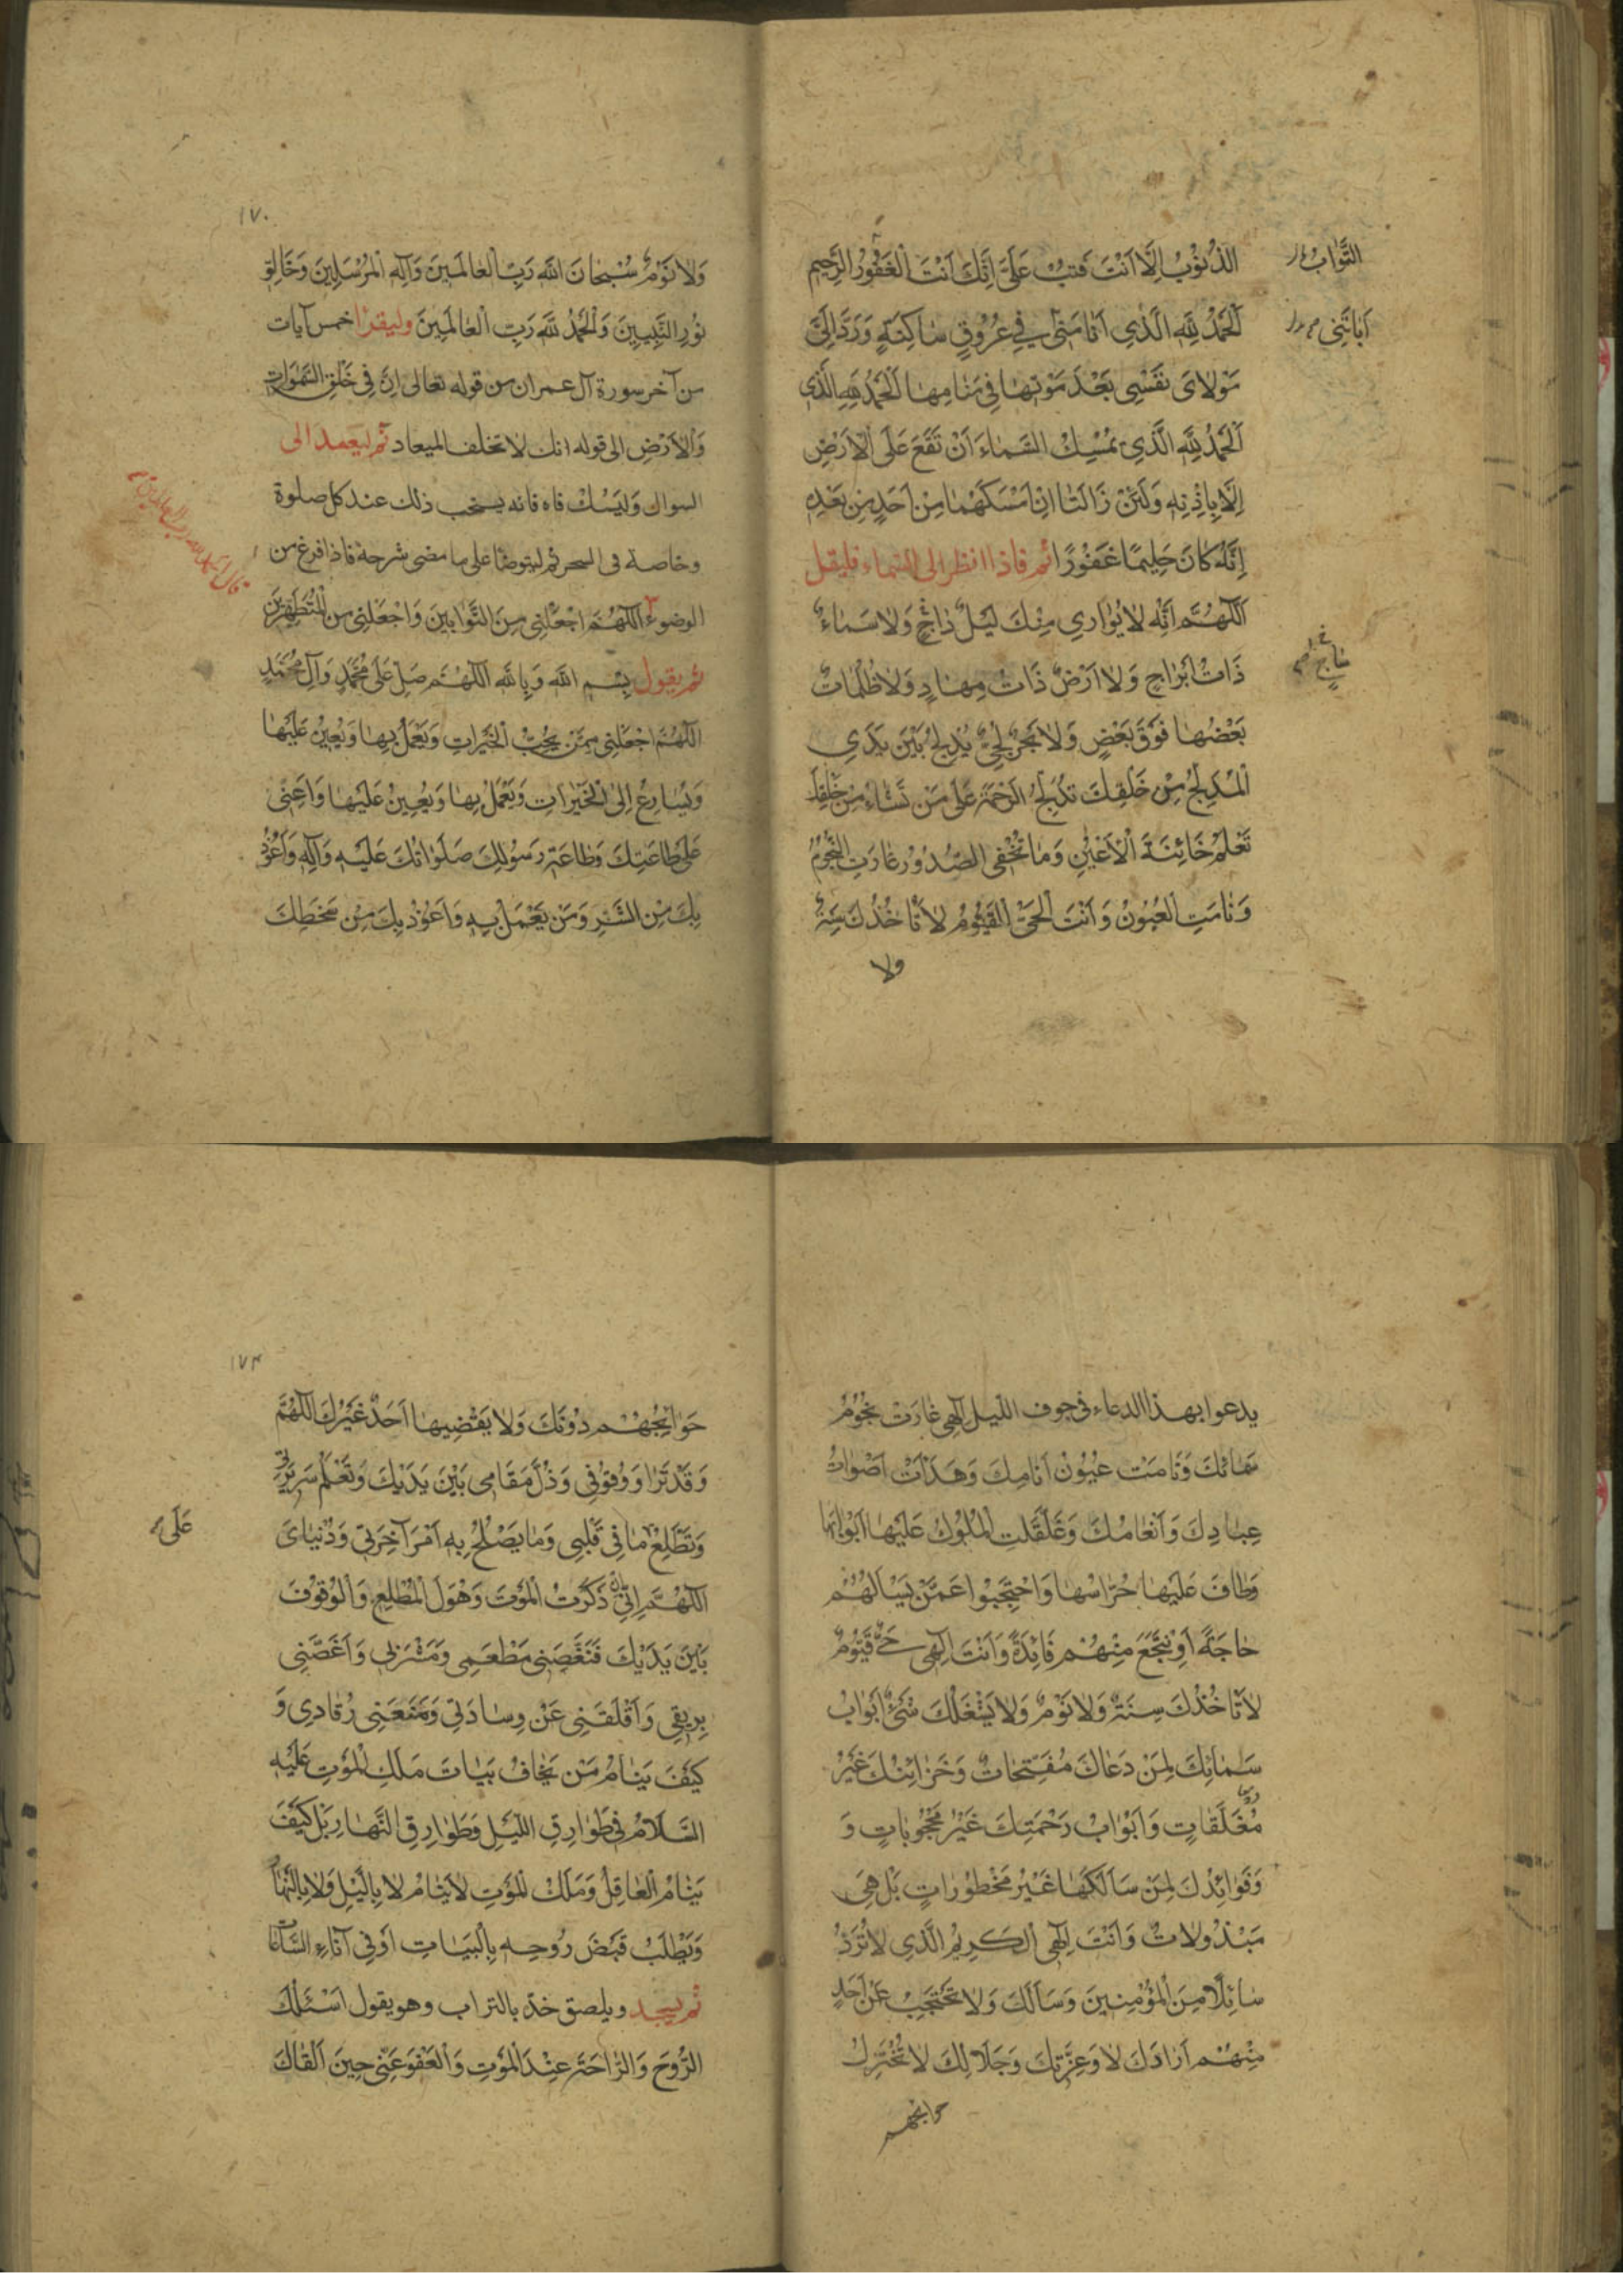 الذُّنُوْبَ اِلَّا اَنْتَ فَتُبْ عَلَيَّ اِنَّكَ اَنْتَ الْغَفُوْرُ الرَّحِيمُ
التَّوَّابُ
اَلْحَمْدُ لِلّٰهِ الَّذِي اَنَامَنِي فِي عُرُوْقٍ سَاكِنَةٍ وَرَدَّ اِلَيَّ
اَبَاتَنِي
مَوْلَايَ نَفْسِي بَعْدَ مَوْتِهَا فِي مَنَامِهَا اَلْحَمْدُ لِلّٰهِ الَّذِي
اَلْحَمْدُ لِلّٰهِ الَّذِي يُمْسِكُ السَّمَاءَ اَنْ تَقَعَ عَلَى الْاَرْضِ
اِلَّا بِاِذْنِهِ وَلَئِنْ زَالَتَا اِنْ اَمْسَكَهُمَا مِنْ اَحَدٍ مِنْ بَعْدِهِ
اِنَّهُ كَانَ حَلِيمًا غَفُوْرًا ثم فاذا انظر الى السماء فليقل
اَللّٰهُمَّ اِنَّهُ لَا يُوَارِي مِنْكَ لَيْلٌ دَاجٍ وَلَا سَمَاءٌ
ذَاتُ اَبْرَاجٍ وَلَا اَرْضٌ ذَاتُ مِهَادٍ وَلَا ظُلُمَاتٌ
بَعْضُهَا فَوْقَ بَعْضٍ وَلَا بَحْرٌ لُجِّيٌّ يُدْلِجُ بَيْنَ يَدَيِ
الْمُدْلِجِ مِنْ خَلْقِكَ تُدْلِجُ الرَّحْمَةَ عَلَى مَنْ تَشَاءُ مِنْ خَلْقِكَ
تَعْلَمُ خَائِنَةَ الْاَعْيُنِ وَمَا تُخْفِي الصُّدُوْرُ غَارَتِ النُّجُوْمُ
وَنَامَتِ الْعُيُوْنُ وَاَنْتَ الْحَيُّ الْقَيُّوْمُ لَا تَاْخُذُكَ سِنَةٌ
ولا
١٧٠
وَلَا نَوْمٌ سُبْحَانَ اللّٰهِ رَبِّ الْعَالَمِينَ وَاِلٰهِ الْمُرْسَلِينَ وَخَالِقِ
نُوْرِ النَّبِيِّينَ وَالْحَمْدُ لِلّٰهِ رَبِّ الْعَالَمِينَ وليقرا خمس آيات
من آخر سورة آل عمران من قوله تعالى اِنَّ فِي خَلْقِ السَّمٰوَاتِ
وَالْاَرْضِ الى قوله انك لا تخلف الميعاد ثم ليعمد الى
السواك وَلْيَسْتَكْ فاه فانه يستحب ذلك عند كل صلوة
وخاصة فى السحر ثم ليتوضا على ما مضى شرحه فاذا فرغ من
الوضوء اَللّٰهُمَّ اجْعَلْنِي مِنَ التَّوَّابِينَ وَاجْعَلْنِي مِنَ الْمُتَطَهِّرِينَ
قال الحمد لله رب العالمين
ثم يقول بِسْمِ اللّٰهِ وَبِاللّٰهِ اَللّٰهُمَّ صَلِّ عَلَى مُحَمَّدٍ وَآلِ مُحَمَّدٍ
اَللّٰهُمَّ اجْعَلْنِي مِمَّنْ يُحِبُّ الْخَيْرَاتِ وَيَعْمَلُ بِهَا وَيُعِينُ عَلَيْهَا
وَيُسَارِعُ اِلَى الْخَيْرَاتِ وَيَعْمَلُ بِهَا وَيُعِينُ عَلَيْهَا وَاَعِنِّي
عَلَى طَاعَتِكَ وَطَاعَةِ رَسُوْلِكَ صَلَوَاتُكَ عَلَيْهِ وَآلِهِ وَاَعُوْذُ
بِكَ مِنَ الشَّرِّ وَمَنْ يَعْمَلُ بِهِ وَاَعُوْذُ بِكَ مِنْ سَخَطِكَ
يدعوا بهذا الدعاء فى جوف الليل اِلٰهِي غَارَتْ نُجُوْمُ
سَمَائِكَ وَنَامَتْ عُيُوْنُ اَنَامِكَ وَهَدَاَتْ اَصْوَاتُ
عِبَادِكَ وَاَنْعَامِكَ وَغَلَّقَتِ الْمُلُوْكُ عَلَيْهَا اَبْوَابَهَا
وَطَافَ عَلَيْهَا حُرَّاسُهَا وَاحْتَجَبُوا عَمَّنْ يَسْاَلُهُمْ
حَاجَةً اَوْ يَنْتَجِعُ مِنْهُمْ فَائِدَةً وَاَنْتَ اِلٰهِي حَيٌّ قَيُّوْمٌ
لَا تَاْخُذُكَ سِنَةٌ وَلَا نَوْمٌ وَلَا يَشْغَلُكَ شَيْءٌ اَبْوَابُ
سَمَائِكَ لِمَنْ دَعَاكَ مُفَتَّحَاتٌ وَخَزَائِنُكَ غَيْرُ
مُغَلَّقَاتٍ وَاَبْوَابُ رَحْمَتِكَ غَيْرُ مَحْجُوْبَاتٍ وَ
وَفَوَائِدُكَ لِمَنْ سَاَلَكَهَا غَيْرُ مَحْظُوْرَاتٍ بَلْ هِيَ
مَبْذُوْلَاتٌ وَاَنْتَ اِلٰهِي الْكَرِيمُ الَّذِي لَا تَرُدُّ
سَائِلًا مِنَ الْمُؤْمِنِينَ وَسَاَلَكَ وَلَا تَحْتَجِبُ عَنْ اَحَدٍ
مِنْهُمْ اَرَادَكَ لَا وَعِزَّتِكَ وَجَلَالِكَ لَا تُخْتَزَلُ
حوائجهم
١٧٤
حَوَائِجُهُمْ دُوْنَكَ وَلَا يَقْضِيهَا اَحَدٌ غَيْرُكَ اَللّٰهُمَّ
وَقَدْ تَرَا وُقُوْفِي وَذُلَّ مَقَامِي بَيْنَ يَدَيْكَ وَتَعْلَمُ سَرِيرَتِي
وَتَطَّلِعُ مَا فِي قَلْبِي وَمَا يَصْلُحُ بِهِ اَمْرُ آخِرَتِي وَدُنْيَايَ
عَلَى
اَللّٰهُمَّ اِنِّي ذَكَرْتُ الْمَوْتَ وَهَوْلَ الْمُطَّلَعِ وَالْوُقُوْفَ
بَيْنَ يَدَيْكَ فَنَغَّصَنِي مَطْعَمِي وَمَشْرَبِي وَاَغَصَّنِي
بِرِيقِي وَاَقْلَقَنِي عَنْ وِسَادَتِي وَمَنَعَنِي رُقَادِي وَ
كَيْفَ يَنَامُ مَنْ يَخَافُ بَيَاتَ مَلَكِ الْمَوْتِ عَلَيْهِ
السَّلَامُ فِي طَوَارِقِ اللَّيْلِ وَطَوَارِقِ النَّهَارِ بَلْ كَيْفَ
يَنَامُ الْعَاقِلُ وَمَلَكُ الْمَوْتِ لَا يَنَامُ لَا بِاللَّيْلِ وَلَا بِالنَّهَارِ
وَيَطْلُبُ قَبْضَ رُوْحِهِ بِالْبَيَاتِ اَوْ فِي آنَاءِ السَّاعَاتِ
ثم يسجد ويلصق خدّه بالتراب وهو يقول اَسْئَلُكَ
الرَّوْحَ وَالرَّاحَةَ عِنْدَ الْمَوْتِ وَالْعَفْوَ عَنِّي حِينَ اَلْقَاكَ